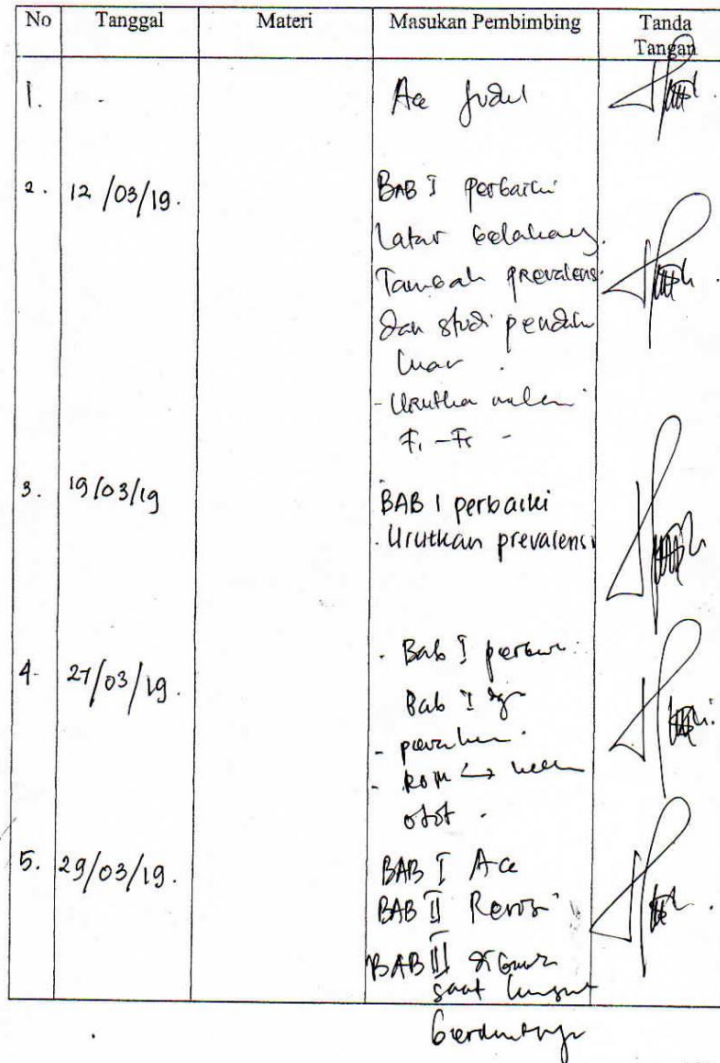 No Tanggal Materi Masukan Pembimbing Tanda Tangan
1. - Acc Judul
2. 12/03/19. BAB I perbaiki
latar belakang.
Tambah prevalensi
dan studi pendahu
luan.
- Urutkan
3. 19/03/19 BAB I perbaiki
- Urutkan prevalensi
4. 27/03/19. - Bab I
Bab I
-
- ROM ↔
otot.
5. 29/03/19. BAB I Acc
BAB II Revisi
BAB III
saat